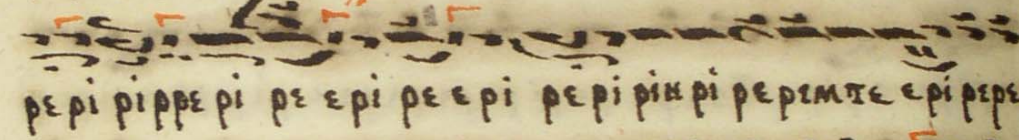 ρε ρι ρι ρρε ρι ρε ε ρι ρε ε ρι ρε ρι ρι κ ρι ρε ρεμ τε ε ρί ρε ρε